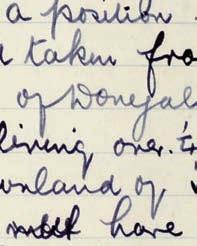 a position
taken fro
of Donegal
living over.
ownland of
have